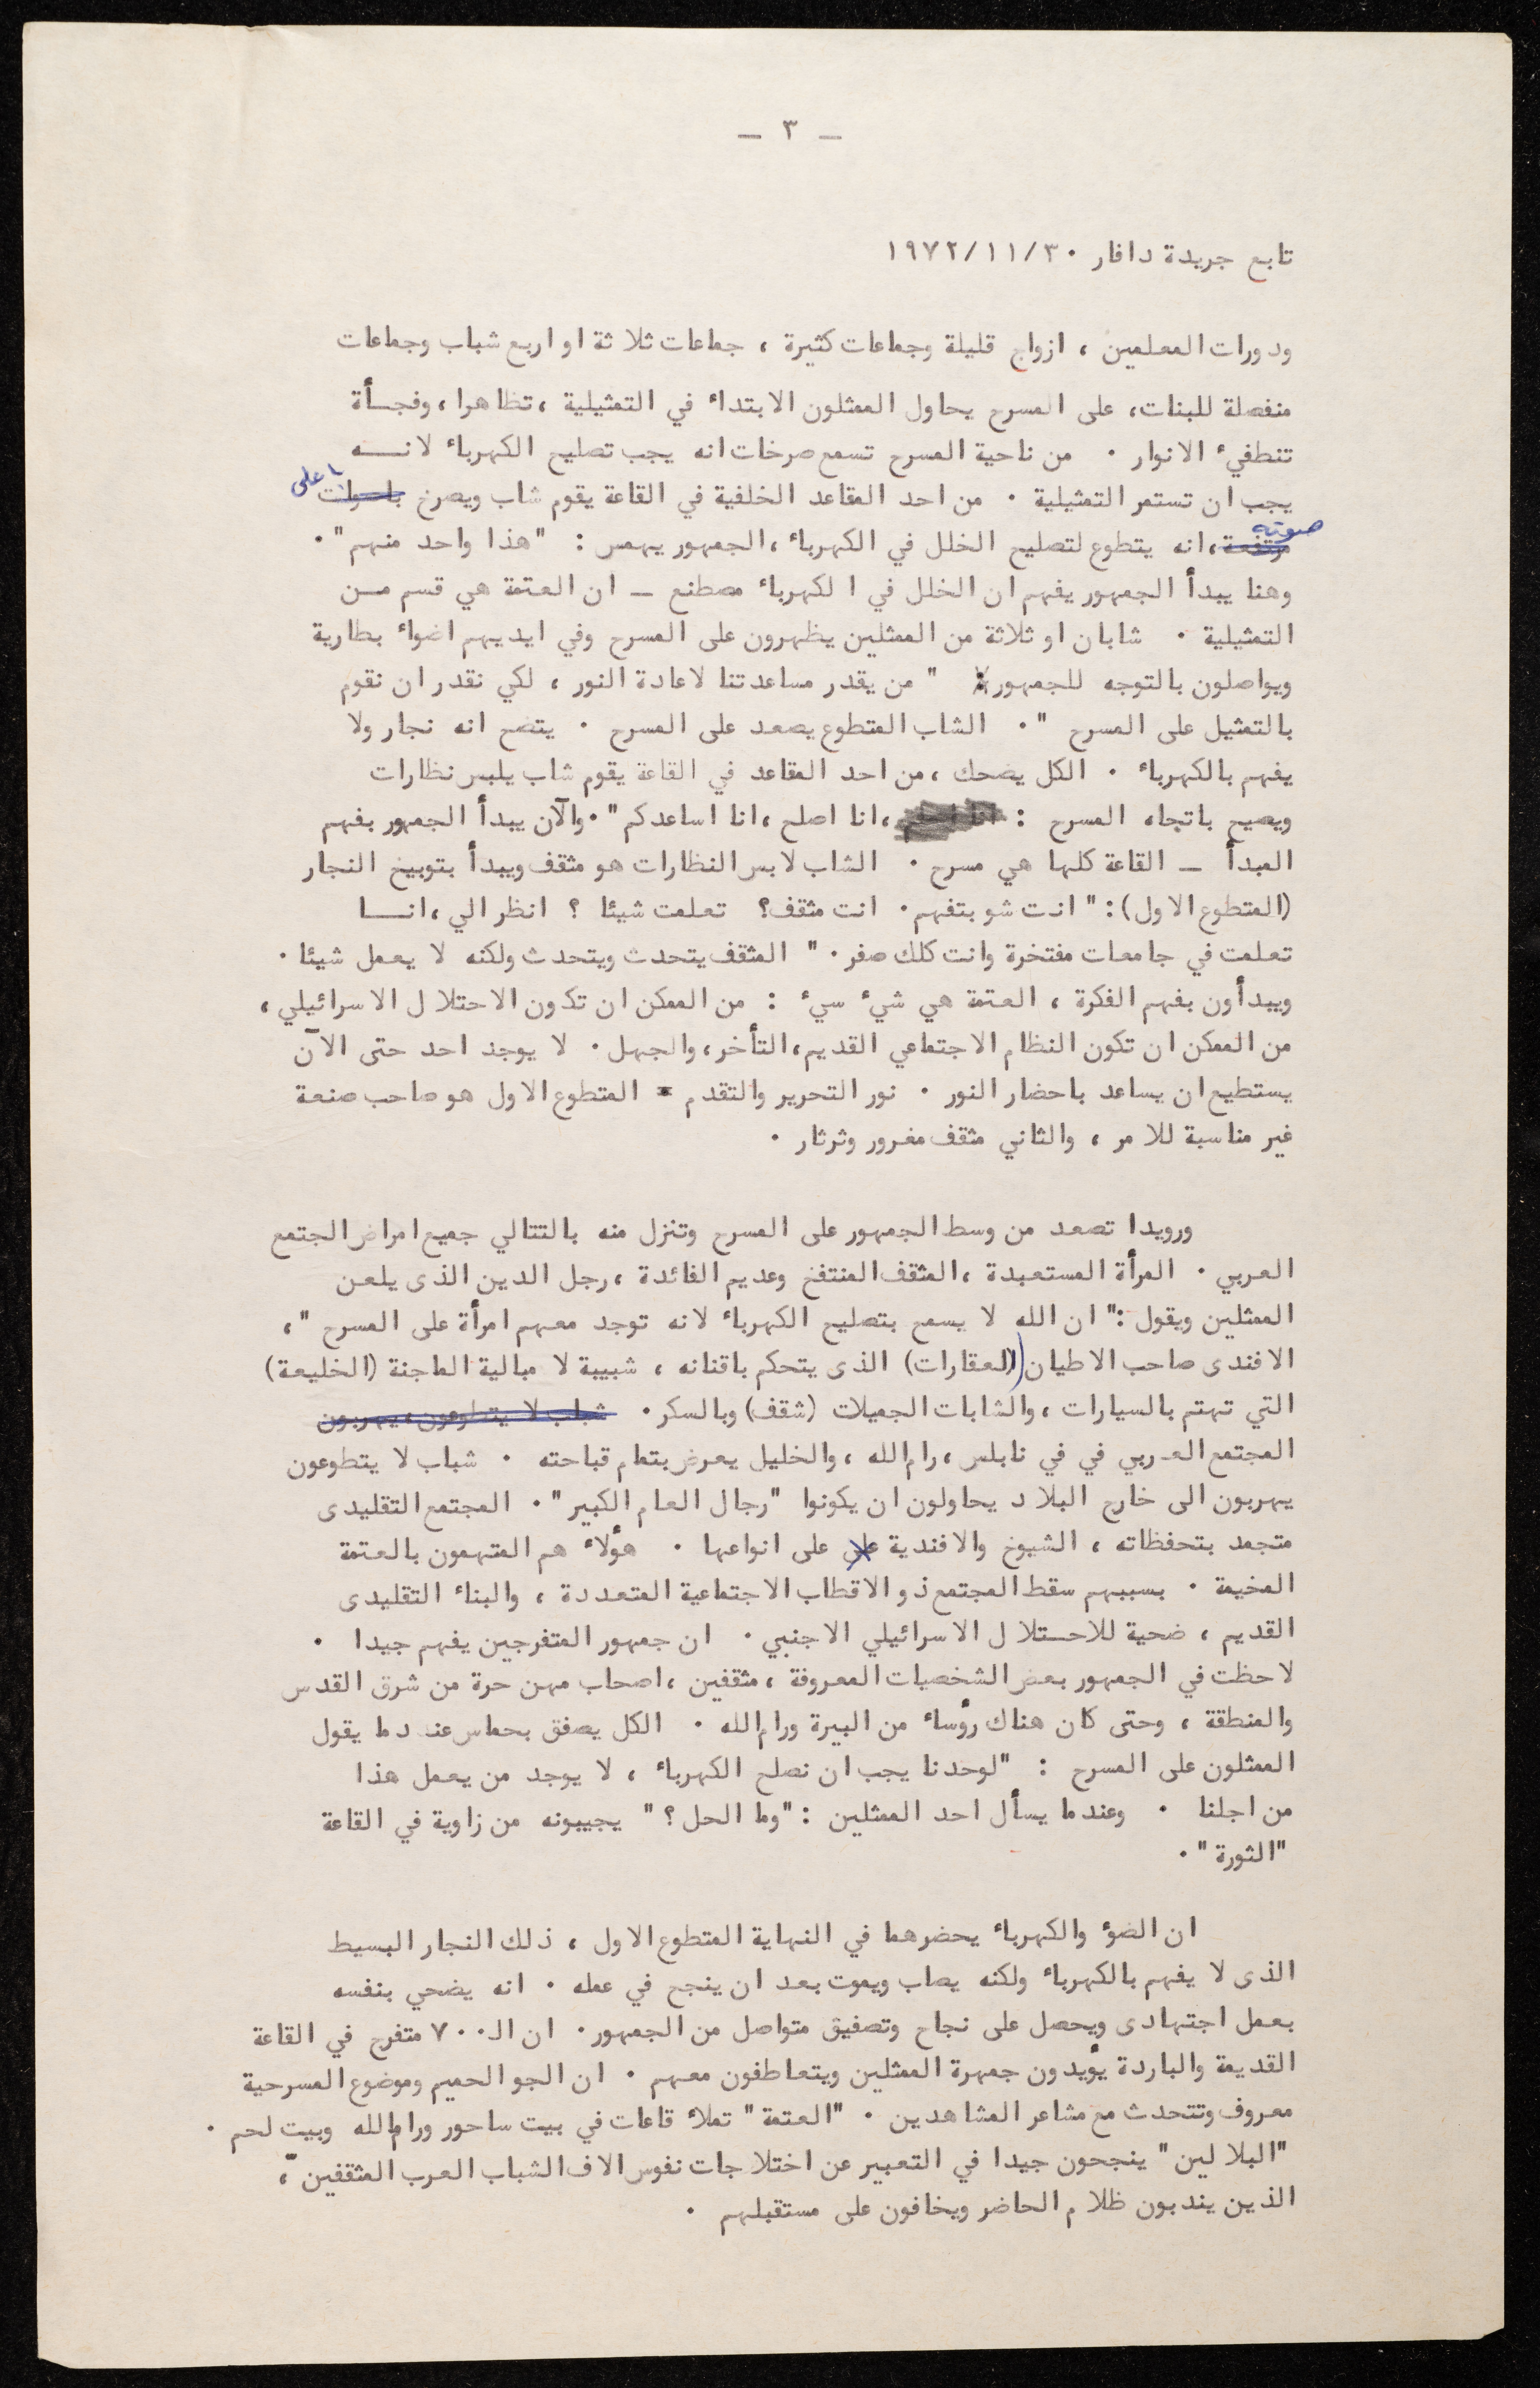 — ٣ —
تابع جريدة دافار ١٩٧٢/١١/٣٠
ودورات المعلمين ، ازواج قليلة وجماعات كثيرة ، جماعات ثلاثة او اربع شباب وجماعات
منفصلة للبنات، على المسرح يحاول الممثلون الابتداء في التمثيلية ، تظاهرا ، وفجـأة
تنطفيء الانوار ٠ من ناحية المسرح تسمع صرخات انه يجب تصليح الكهرباء لانـــه
يجب ان تستمر التمثيلية ٠ من احد المقاعد الخلفية في القاعة يقوم شاب ويصرخ باصوات باعلى
مرتفعة صوته ، انه يتطوع لتصليح الخلل في الكهرباء ، الجمهور يهمس : "هذا واحد منهم" ٠
وهنا يبدأ الجمهور يفهم ان الخلل في الكهرباء مصطنع — ان العتمة هي قسم مــن
التمثيلية ٠ شابان او ثلاثة من الممثلين يظهرون على المسرح وفي ايديهم اضواء بطارية
ويواصلون بالتوجه للجمهور " من يقدر مساعدتنا لاعادة النور ، لكي نقدر ان نقوم
بالتمثيل على المسرح " ٠ الشاب المتطوع يصعد على المسرح ٠ يتضح انه نجار ولا
يفهم بالكهرباء ٠ الكل يضحك ، من احد المقاعد في القاعة يقوم شاب يلبس نظارات
ويصيح باتجاه المسرح : ، انا اصلح ، انا اساعدكم " ٠ والآن يبدأ الجمهور بفهم
المبدأ — القاعة كلها هي مسرح ٠ الشاب لابس النظارات هو مثقف ويبدأ بتوبيخ النجار
(المتطوع الاول) : " انت شو بتفهم ٠ انت مثقف؟ تعلمت شيئا ؟ انظر الي ، انــا
تعلمت في جامعات مفتخرة وانت كلك صفر ٠ " المثقف يتحدث ويتحدث ولكنه لا يعمل شيئا ٠
ويبدأون بفهم الفكرة ، العتمة هي شيء سيء : من الممكن ان تكون الاحتلال الاسرائيلي ،
من الممكن ان تكون النظام الاجتماعي القديم، التأخر، والجهل ٠ لا يوجد احد حتى الآن
يستطيع ان يساعد باحضار النور ٠ نور التحرير والتقدم - المتطوع الاول هو صاحب صنعة
غير مناسبة للامر ، والثاني مثقف مغرور وثرثار ٠
ورويدا تصعد من وسط الجمهور على المسرح وتنزل منه بالتتالي جميع امراض الجتمع
العربي ٠ المرأة المستعبدة ، المثقف المنتفخ وعديم الفائدة ، رجل الدين الذى يلعن
الممثلين ويقول :" ان الله لا يسمح بتصليح الكهرباء لانه توجد معهم امرأة على المسرح " ،
الافندى صاحب الاطيان (العقارات) الذى يتحكم باقنانه ، شبيبة لا مبالية الماجنة (الخليعة)
التي تهتم بالسيارات ، والشابات الجميلات (شقف) وبالسكر ٠ شباب لا يتطوعون ، يهربون
المجتمع العربي في في نابلس ، رام الله ، والخليل يعرض بتمام قباحته ٠ شباب لا يتطوعون
يهربون الى خارج البلاد يحاولون ان يكونوا "رجال العام الكبير" ٠ المجتمع التقليدى
متجمد بتحفظاته ، الشيوخ والافندية على على انواعها ٠ هؤلاء هم المتهمون بالعتمة
المخيمة ٠ بسببهم سقط المجتمع ذو الاقطاب الاجتماعية المتعددة ، والبناء التقليدى
القديم ، ضحية للاحـتلال الاسرائيلي الاجنبي ٠ ان جمهور المتفرجين يفهم جيدا ٠
لاحظت في الجمهور بعض الشخصيات المعروفة ، مثقفين ، اصحاب مهن حرة من شرق القدس
والمنطقة ، وحتى كان هناك رؤساء من البيرة ورام الله ٠ الكل يصفق بحماس عندما يقول
الممثلون على المسرح : "لوحدنا يجب ان نصلح الكهرباء ، لا يوجد من يعمل هذا
من اجلنا ٠ وعندما يسأل احد الممثلين : "وما الحل ؟ " يجيبونه من زاوية في القاعة
"الثورة " ٠
ان الضؤ والكهرباء يحضرهما في النهاية المتطوع الاول ، ذلك النجار البسيط
الذى لا يفهم بالكهرباء ولكنه يصاب ويموت بعد ان ينجح في عمله ٠ انه يضحي بنفسه
بعمل اجتهادى ويحصل على نجاح وتصفيق متواصل من الجمهور ٠ ان الـ ٧٠٠ متفرج في القاعة
القديمة والباردة يؤيدون جمهرة الممثلين ويتعاطفون معهم ٠ ان الجو الحميم وموضوع المسرحية
معروف وتتحدث مع مشاعر المشاهدين ٠ "العتمة" تملاء قاعات في بيت ساحور ورام الله وبيت لحم ٠
"البلالين" ينجحون جيدا في التعبير عن اختلاجات نفوس الاف الشباب العرب المثقفين ،
الذين يندبون ظلام الحاضر ويخافون على مستقبلهم ٠